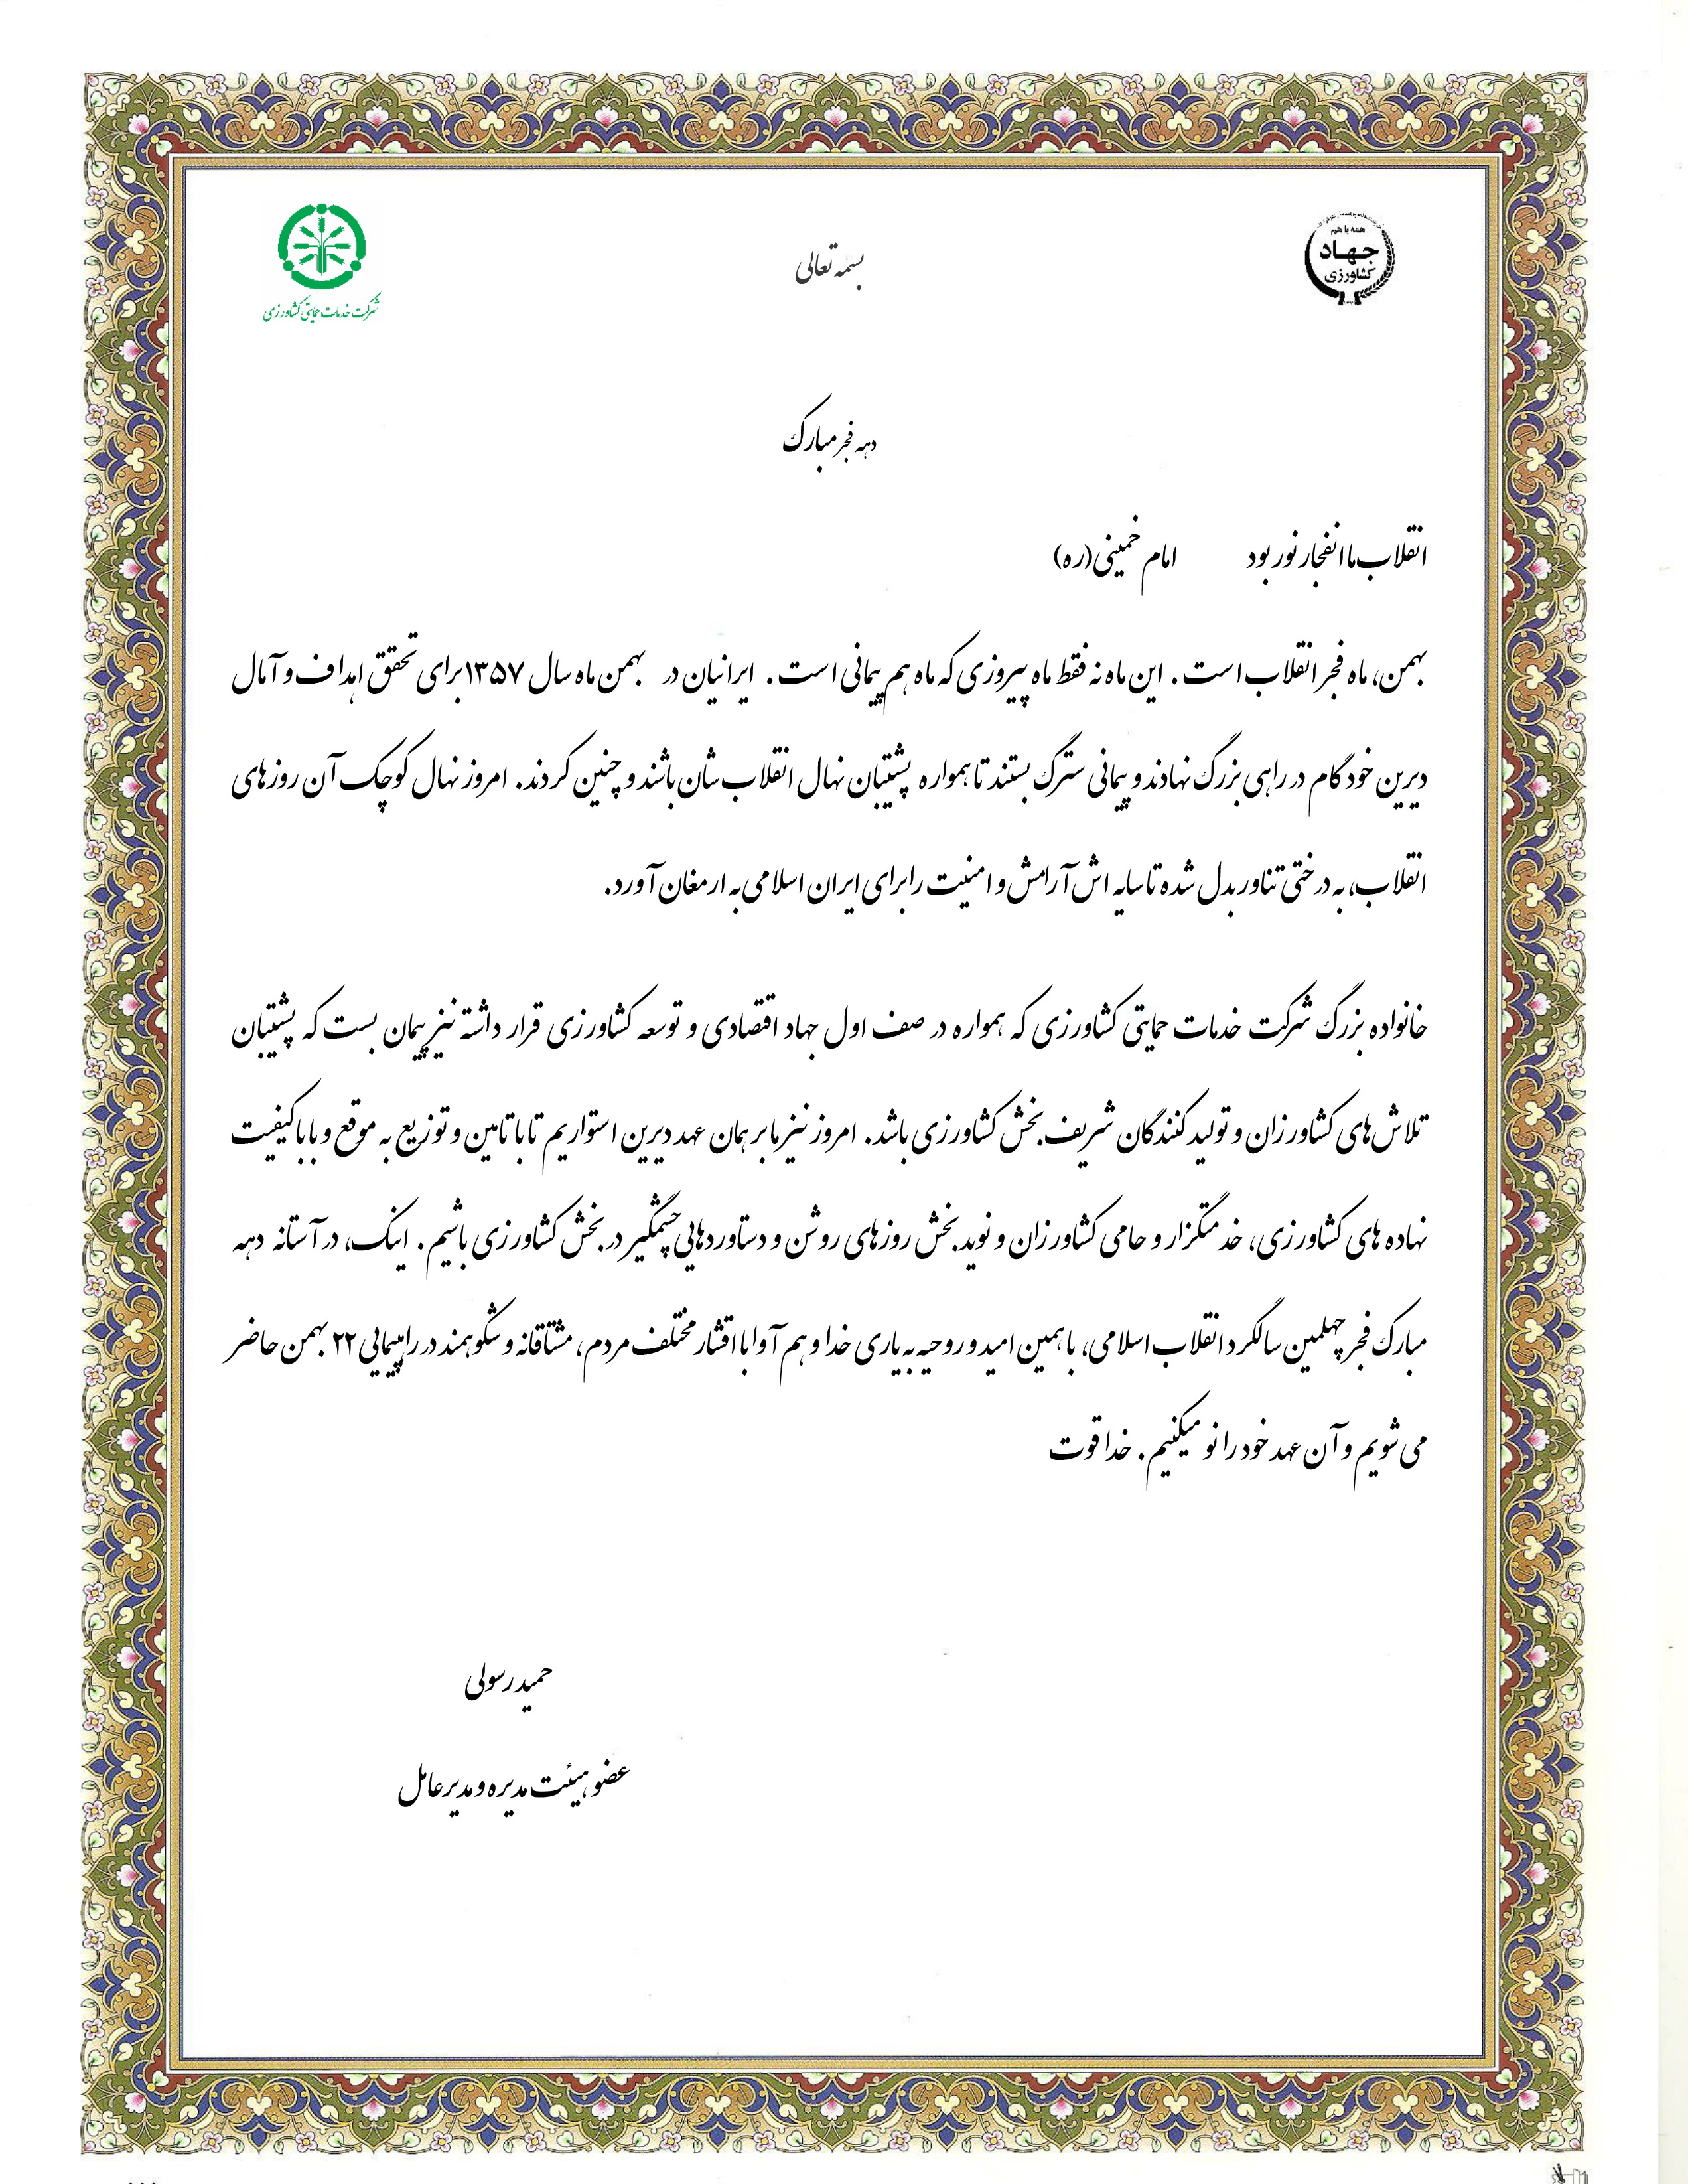 بسمه تعالی
همه با هم
جهاد
کشاورزی
شرکت خدمات حمایتی کشاورزی
دهه فجر مبارک
انقلاب ما انفجار نور بود امام خمینی(ره)
بهمن، ماه فجر انقلاب است. این ماه نه فقط ماه پیروزی که ماه هم پیمانی است. ایرانیان در بهمن ماه سال ۱۳۵۷ برای تحقق اهداف و آمال
دیرین خود گام در راهی بزرگ نهادند و پیمانی سترگ بستند تا همواره پشتیبان نهال انقلاب شان باشند و چنین کردند. امروز نهال کوچک آن روزهای
انقلاب، به درختی تناور بدل شده تا سایه اش آرامش و امنیت را برای ایران اسلامی به ارمغان آورد.
خانواده بزرگ شرکت خدمات حمایتی کشاورزی که همواره در صف اول جهاد اقتصادی و توسعه کشاورزی قرار داشته نیز پیمان بست که پشتیبان
تلاش های کشاورزان و تولید کنندگان شریف بخش کشاورزی باشد. امروز نیز ما بر همان عهد دیرین استواریم تا با تامین و توزیع به موقع و با با کیفیت
نهاده های کشاورزی، خدمتگزار و حامی کشاورزان و نوید بخش روزهای روشن و دستاوردهایی چشمگیر در بخش کشاورزی باشیم. اینک، در آستانه دهه
مبارک فجر چهلمین سالگرد انقلاب اسلامی، با همین امید و روحیه به یاری خدا و هم آوا با اقشار مختلف مردم، مشتاقانه و شکوهمند در راهپیمایی ۲۲ بهمن حاضر
می شویم و آن عهد خود را نو میکنیم. خدا قوت
حمید رسولی
عضو هیئت مدیره و مدیر عامل